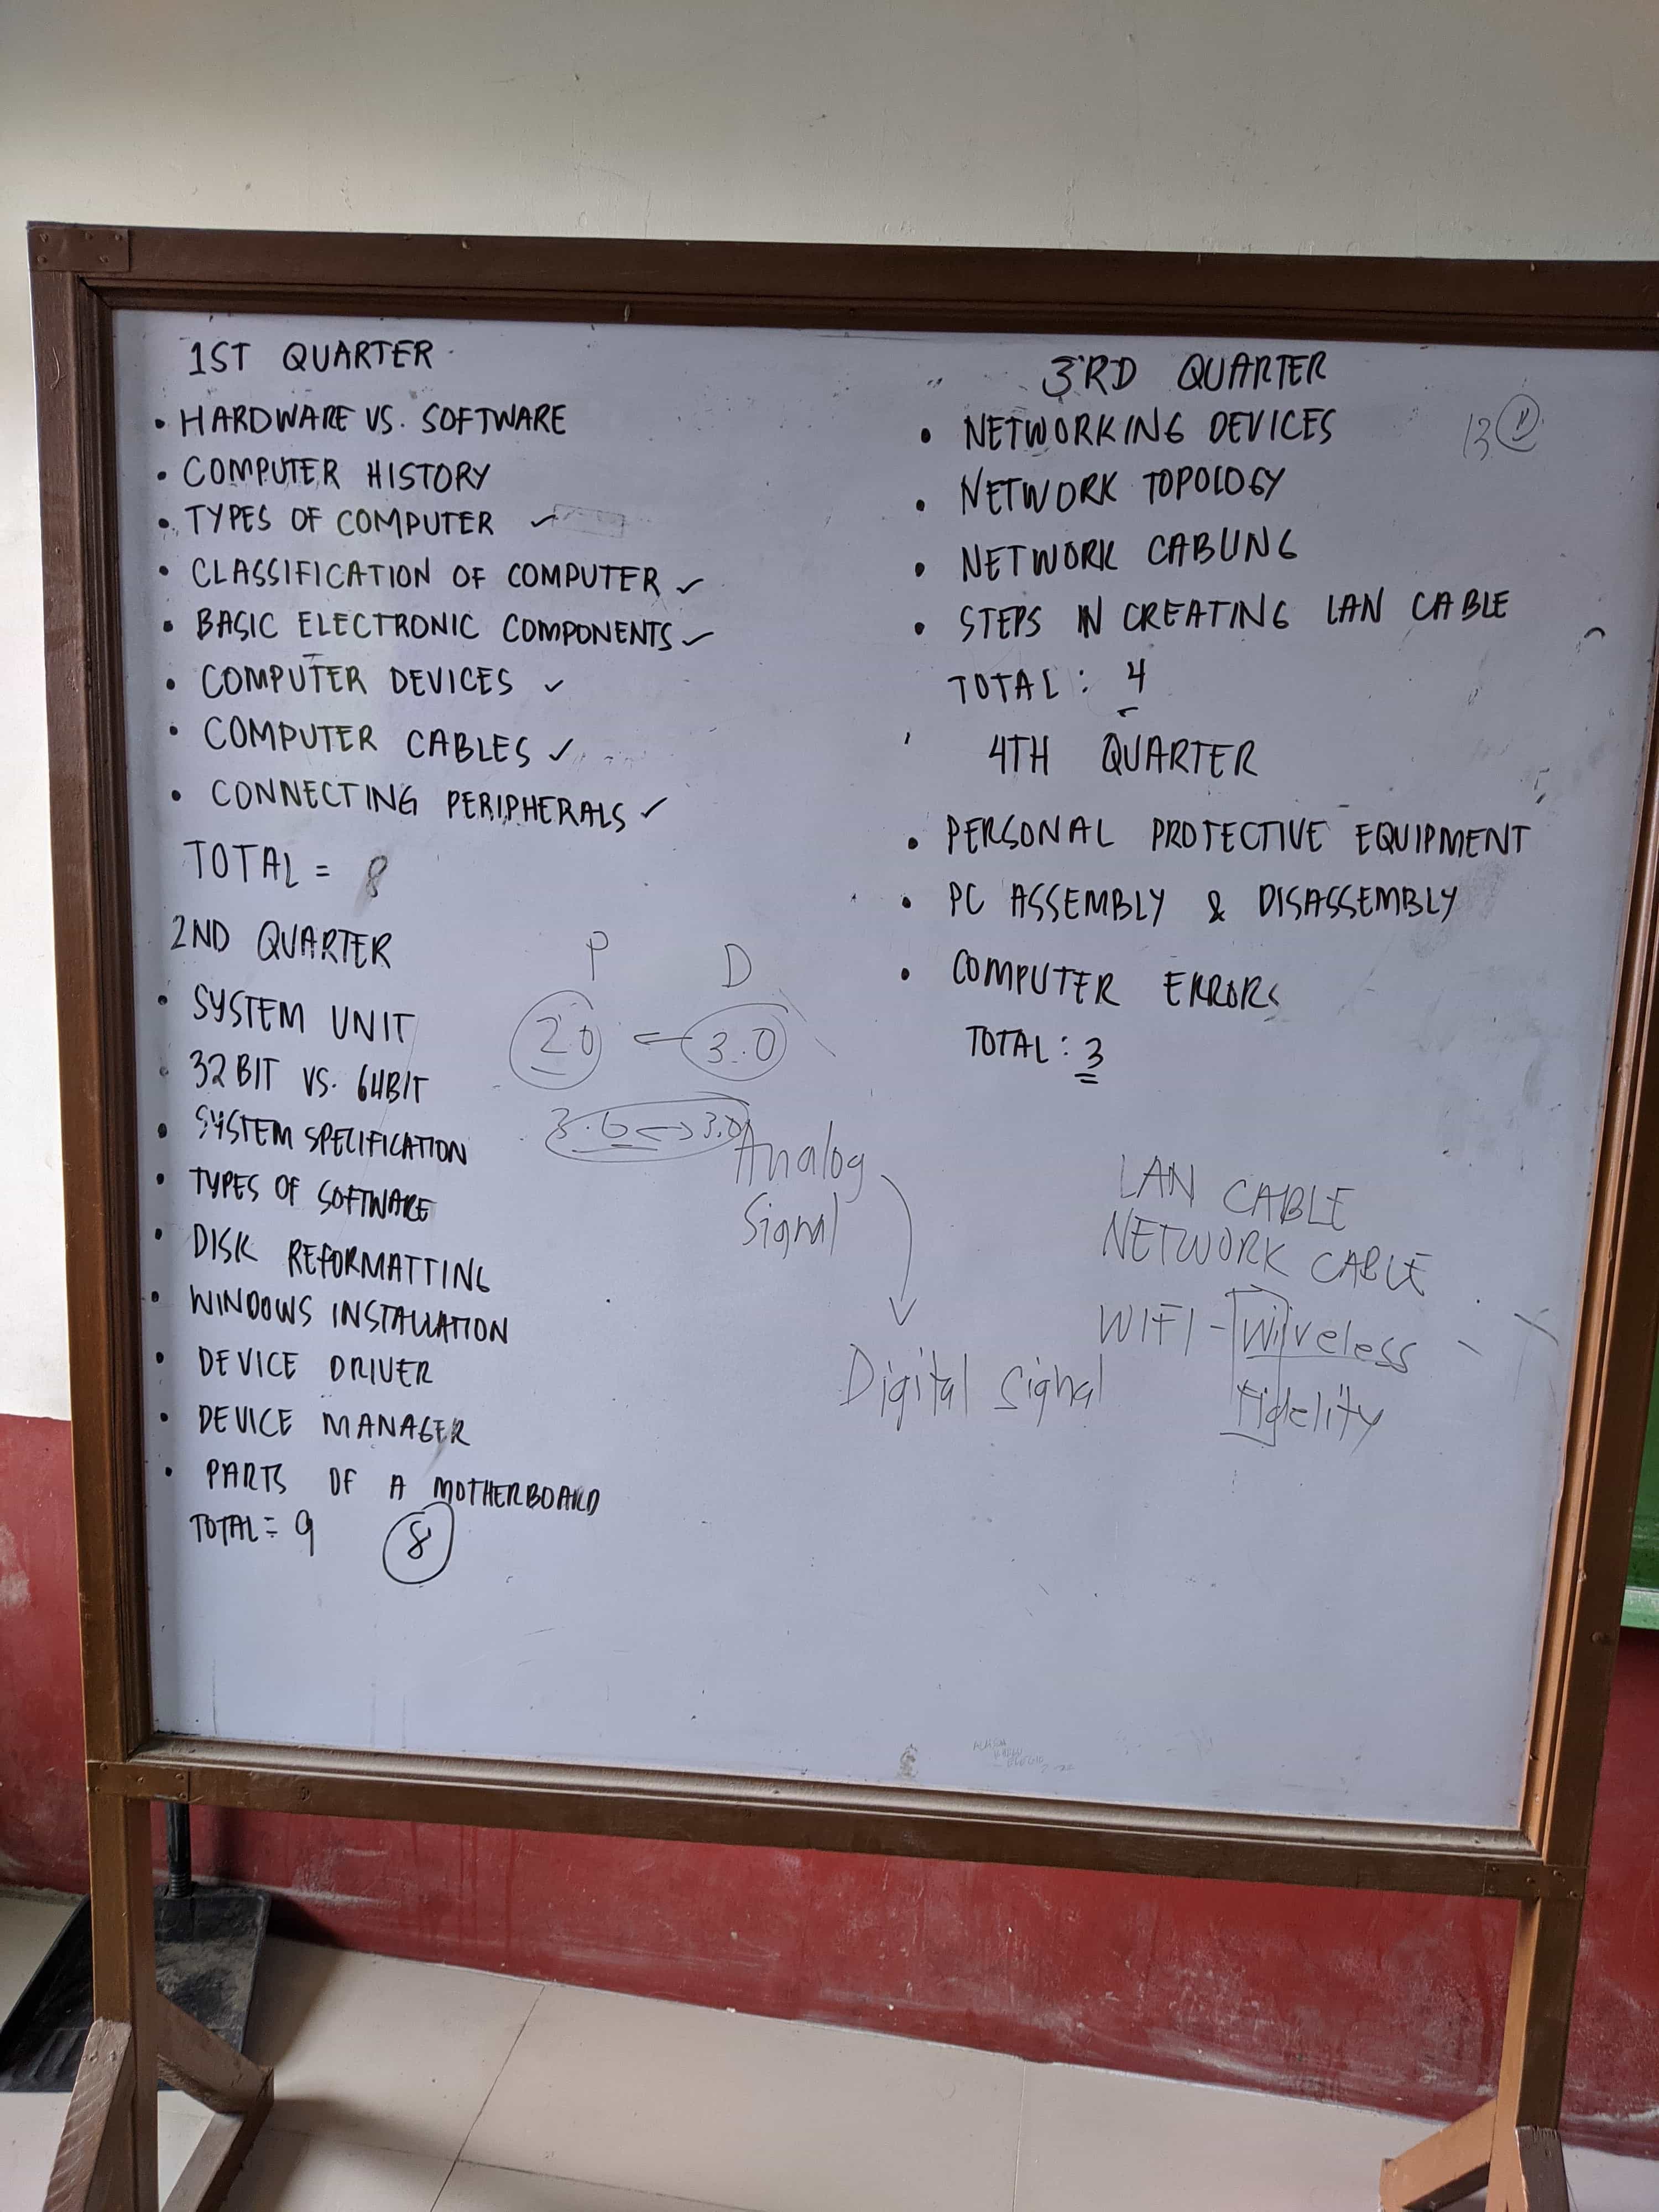 1ST QUARTER
• HARDWARE VS. SOFTWARE
• COMPUTER HISTORY
• TYPES OF COMPUTER ✓
• CLASSIFICATION OF COMPUTER ✓
• BASIC ELECTRONIC COMPONENTS ✓
• COMPUTER DEVICES ✓
• COMPUTER CABLES ✓
• CONNECTING PERIPHERALS ✓
TOTAL = 8
2ND QUARTER
• SYSTEM UNIT
• 32BIT VS. 64BIT
• SYSTEM SPECIFICATION
• TYPES OF SOFTWARE
• DISK REFORMATTING
• WINDOWS INSTALLATION
• DEVICE DRIVER
• DEVICE MANAGER
• PARTS OF A MOTHERBOARD
TOTAL = 9 8
P D
2.0 ← 3.0
↔ 3.0
Analog
Signal
Digital Signal
3RD QUARTER
• NETWORKING DEVICES
13
• NETWORK TOPOLOGY
• NETWORK CABLING
• STEPS IN CREATING LAN CABLE
TOTAL : 4
4TH QUARTER
• PERSONAL PROTECTIVE EQUIPMENT
• PC ASSEMBLY & DISASSEMBLY
• COMPUTER ERRORS
TOTAL : 3
LAN CABLE
NETWORK CABLE
WIFI - Wireless
Fidelity